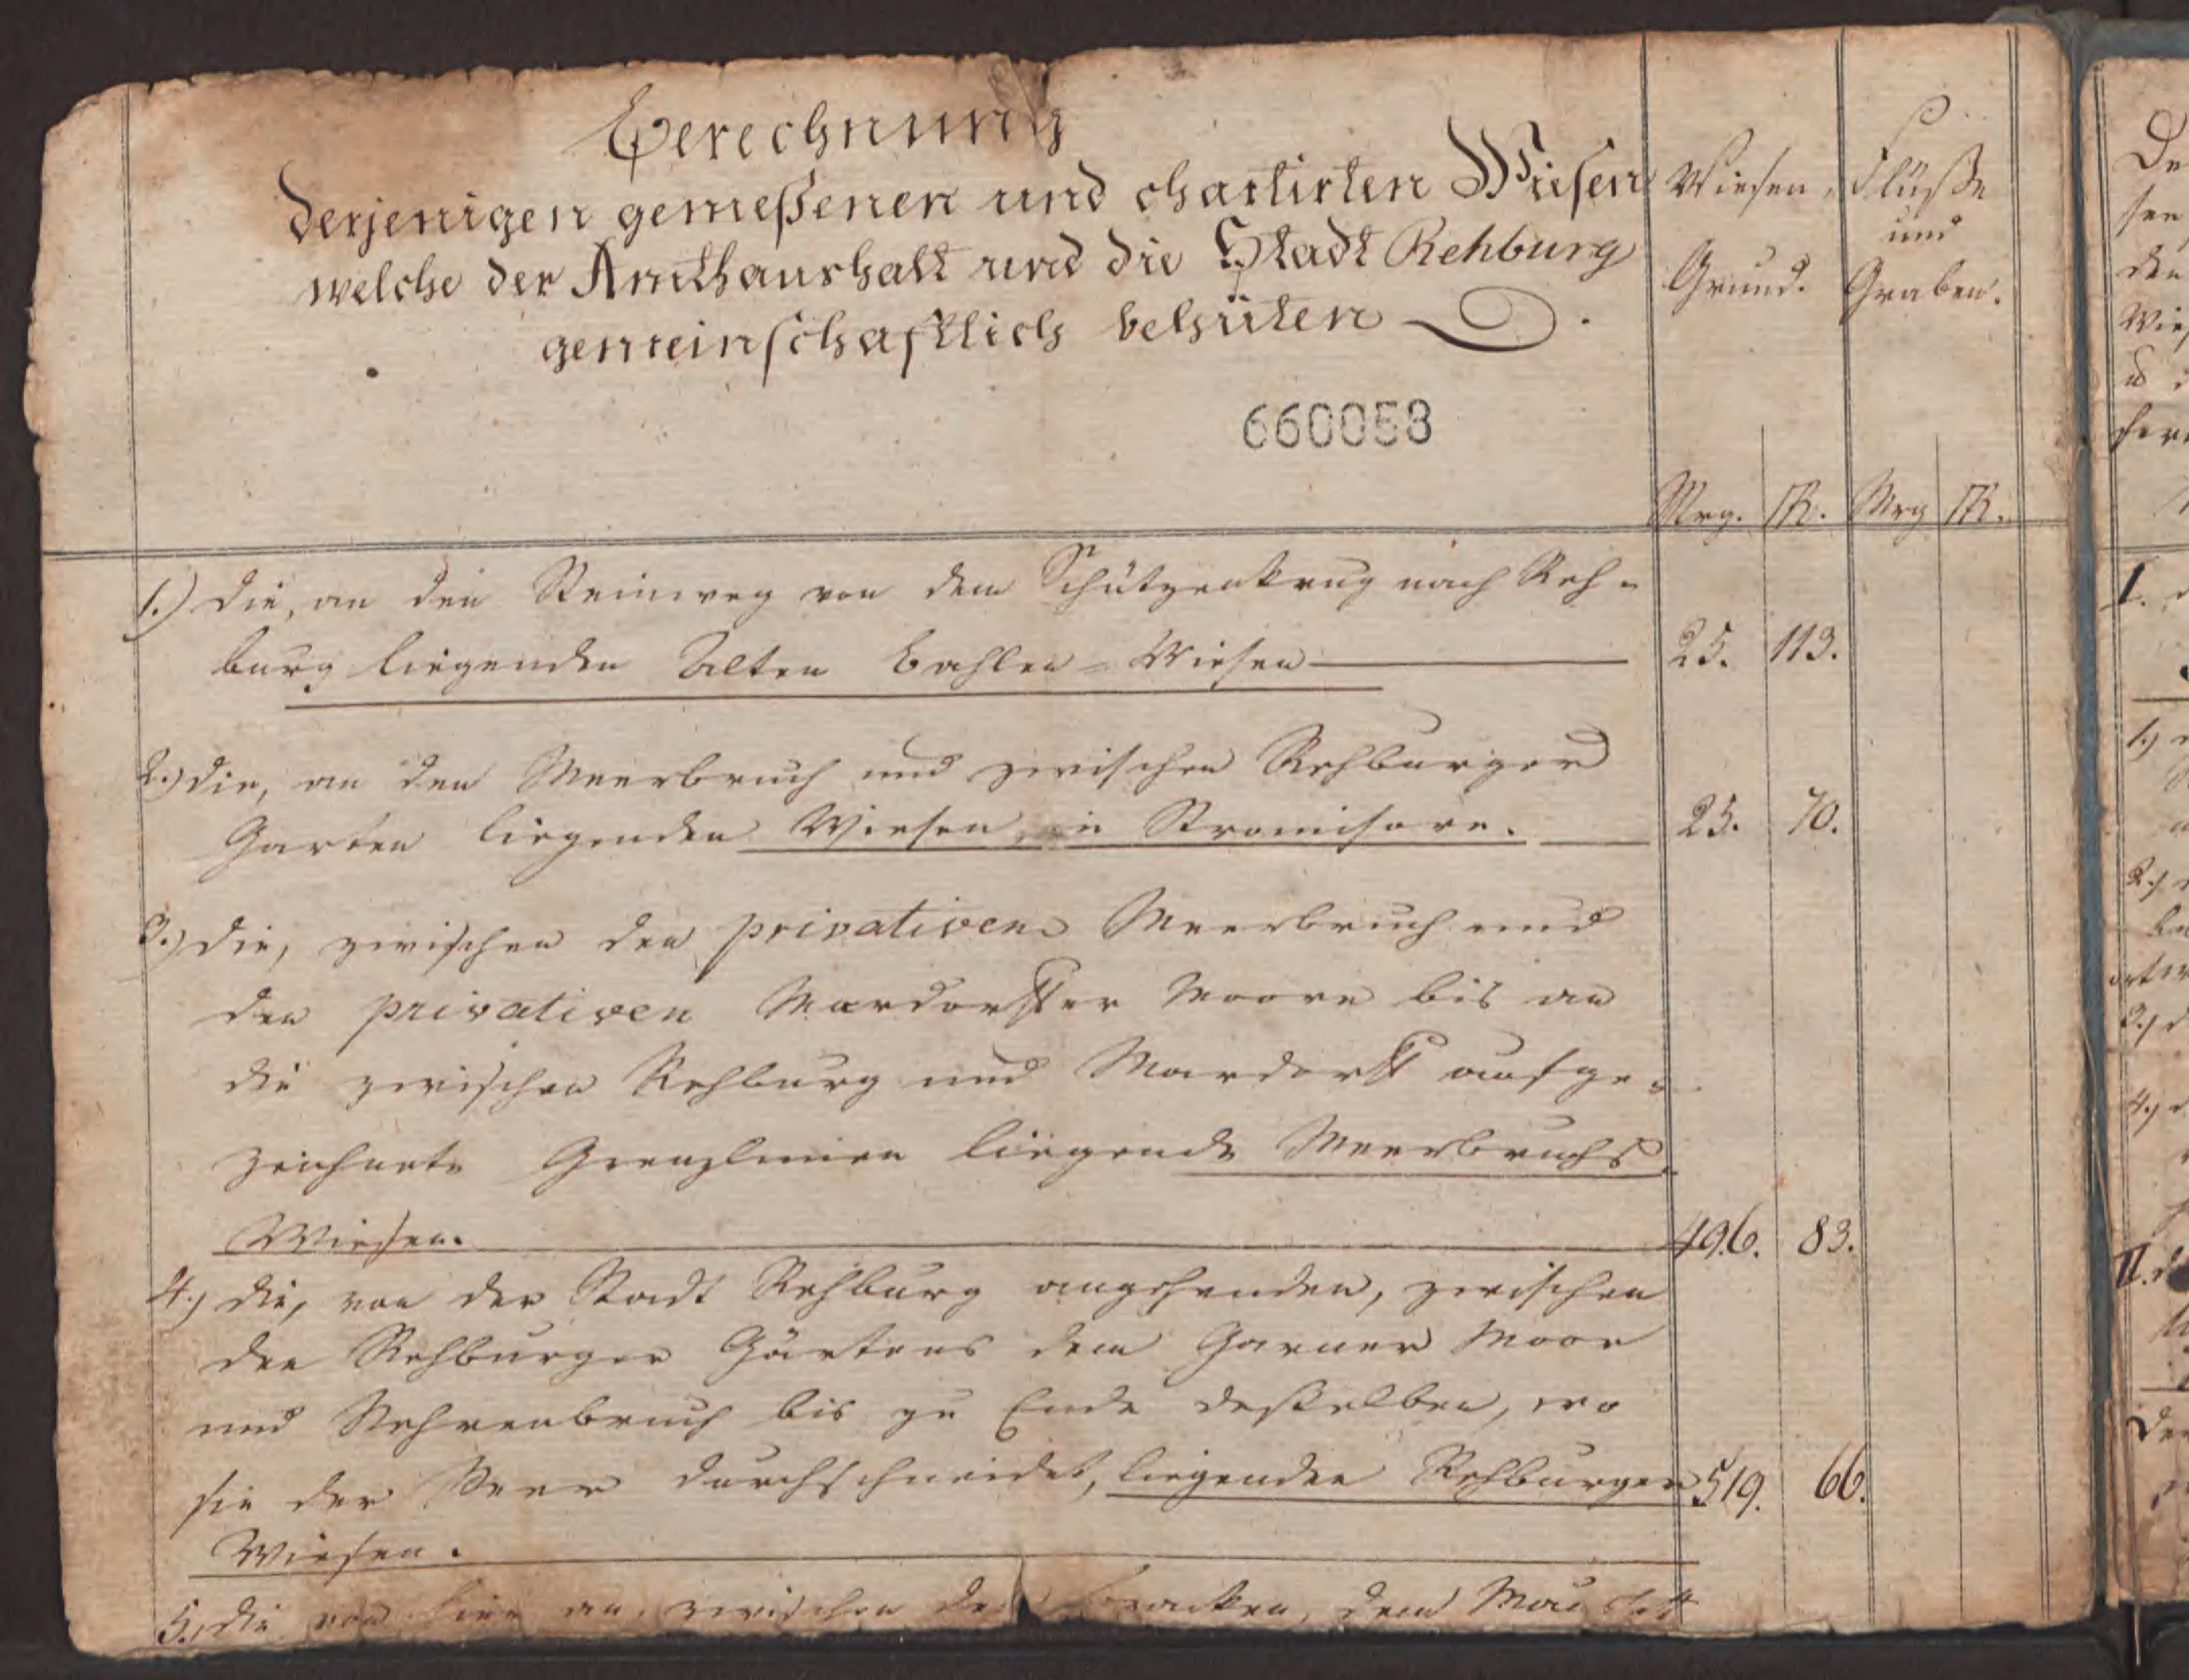 Berechnung
derjenigen gemeßenen und chartirten Wiesen
welche der Amthaushalt und die Stadt Rehburg
gemeinschaftlich behüten
Wiesen Grund.
Flüße und Graben.
660058
Mrg. R. Mrg R.
1.) die, an den Steinweg von dem Schützenkrug nach Reh-
burg liegenden Alten Bahlen-Wiesen 25. 113.
2.) die, an den Meerbruch und zwischen Rehburger
Garten liegenden Wiesen, in 25. 70.
3.) die, zwischen den privativen Meerbruch und
den privativen Mardorffer Moore bis an
die zwischen Rehburg und Mardorff aufge-
zeichnete Grenzlinien liegende Meerbruchs-
Wiesen. 496. 83.
4.) die, von der Stadt Rehburg angehenden, zwischen
den Rehburger Gärtens dem Moor
und bis zu Ende deßelben, wo
sie der durchschneidet, liegenden Rehburger 519. 66.
Wiesen.
5.) die von hier an, zwischen dem